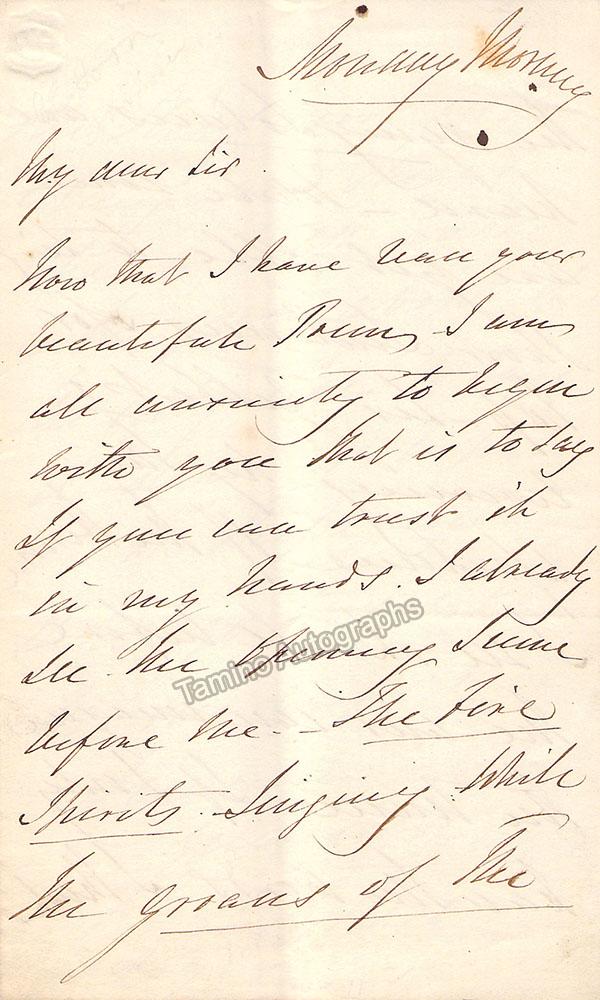 Monday Morning
My dear Sir
Now that I have read your
beautiful Poem, I am
all anxiety to begin
with you that is to say
If you can trust it
in my hands. I already
see the Scene
before me - The Fire
Spirits Singing While
the groans of The
Tamino Autographs